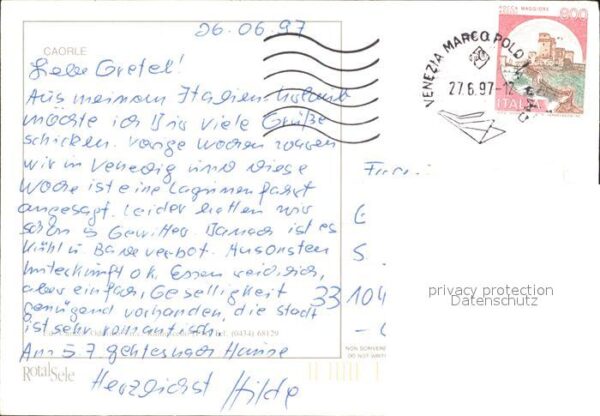 26.06.97
CAORLE
Liebe Gretel!
Aus meinem Italien-Urlaub
möchte ich Dir viele Grüße
schicken. Vorige Wochen waren
wir in Venedig und diese
Woche ist eine Lagunenfahrt
angesagt. Leider hatten wir
schon 3 Gewitter. Danach ist es
kühl u. Badeverbot. Ansonsten
Unterkunft ok. Essen reichlich,
aber einfach, Geselligkeit
genügend vorhanden, die Stadt
ist sehr romantisch.
tel. (0431) 68129
Am 5.7. geht es nach Hause
Herzlichst Hilde
Rotal Sele
ROCCA MAGGIORE
ASSISI
800
ITALIA
VENEZIA MARCO POLO
27.6.97-12
G
S
33 104
privacy protection
Datenschutz
NON SCRIVERE
DO NOT WRITE